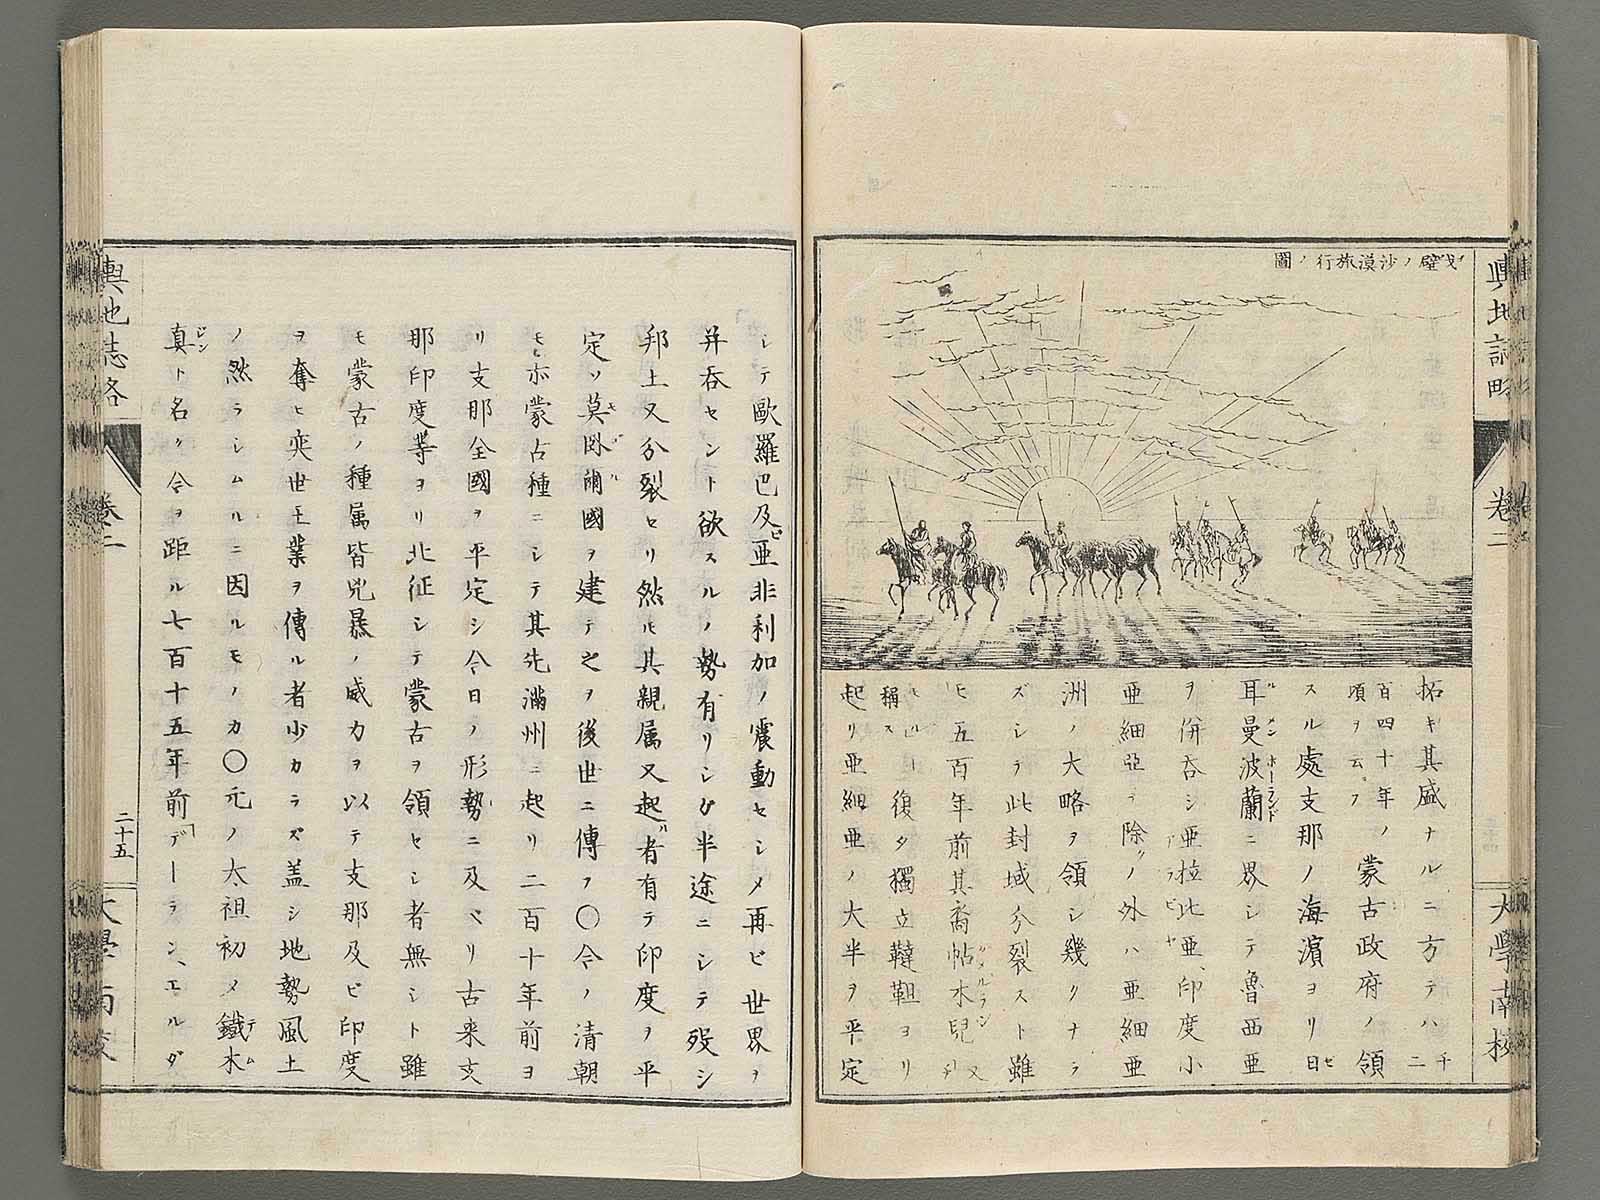 戈壁ノ沙漠旅行ノ圖
輿地誌略
卷二
大學南校
拓キ其盛ナルニ方テハ千二
百四十年ノ頃ヲ云フ蒙古政府ノ領
スル處支那ノ海濵ヨリ日
耳曼波蘭ニ界シテ魯西亜
ヲ併呑シ亜拉比亜、印度小
亜細亞ヲ除クノ外ハ亜細亜
洲ノ大略ヲ領シ幾クナラ
ズシテ此封域分裂スト雖
モ五百年前其裔帖木兒
稱ス復タ獨立韃靼ヨリ
起リ亜細亜ノ大半ヲ平定
シテ歐羅巴及ビ亜非利加ノ震動セシメ再ビ世界ヲ
并呑セント欲スルノ勢有リシガ半途ニシテ殁シ
邦土又分裂セリ然ルニ其親属又起ル者有テ印度ヲ平
定ソ莫卧爾國ヲ建テ之ヲ後世ニ傳フ〇今ノ清朝
モ亦蒙古種ニシテ其先滿州ニ起リ二百十年前ヨ
リ支那全國ヲ平定シ今日ノ形勢ニ及ベリ古来支
那印度等ヨリ北征シテ蒙古ヲ領セシ者無シト雖
モ蒙古ノ種属皆兇暴ノ威力ヲ以テ支那及ビ印度
ヲ奪ヒ奕世王業ヲ傳ル者少カラズ盖シ地勢風土
ノ然ラシムルニ因ルモノカ〇元ノ太祖初メ鐵木
真ト名ク今ヲ距ル七百十五年前デーラン、エルダ
輿地誌略
卷二
二十五
大學南校